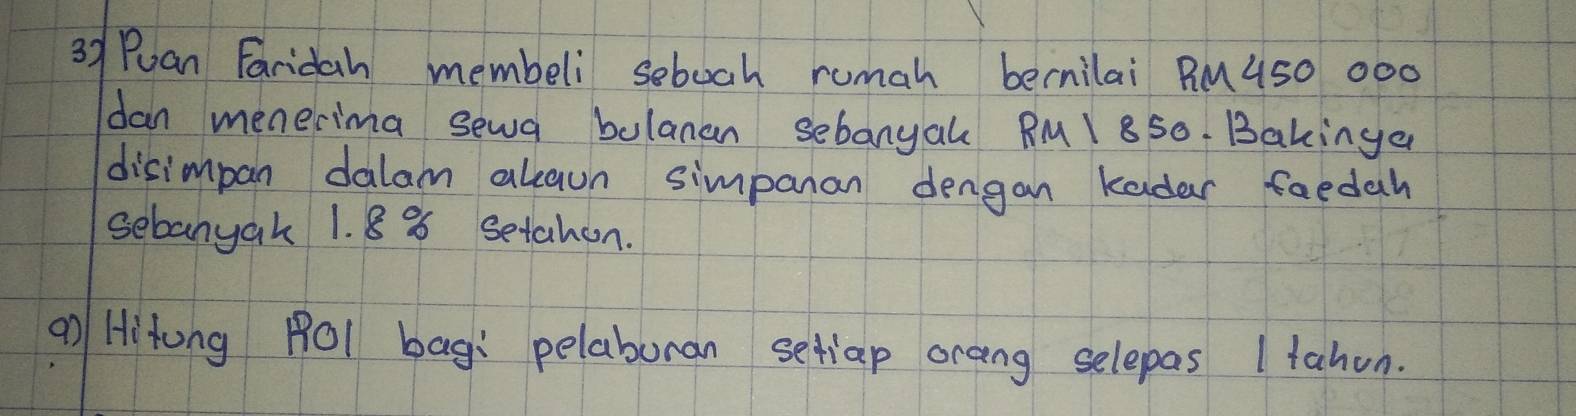 3) Puan Faridah membeli sebuah rumah bernilai RM450 000
dan menerima sewa bulanan sebanyak RM1 850. Bakinya
disimpan dalam akaun simpanan dengan kadar faedah
sebanyak 1.8% setahun.
a) Hitung ROI bagi pelaburan setiap orang selepas 1 tahun.